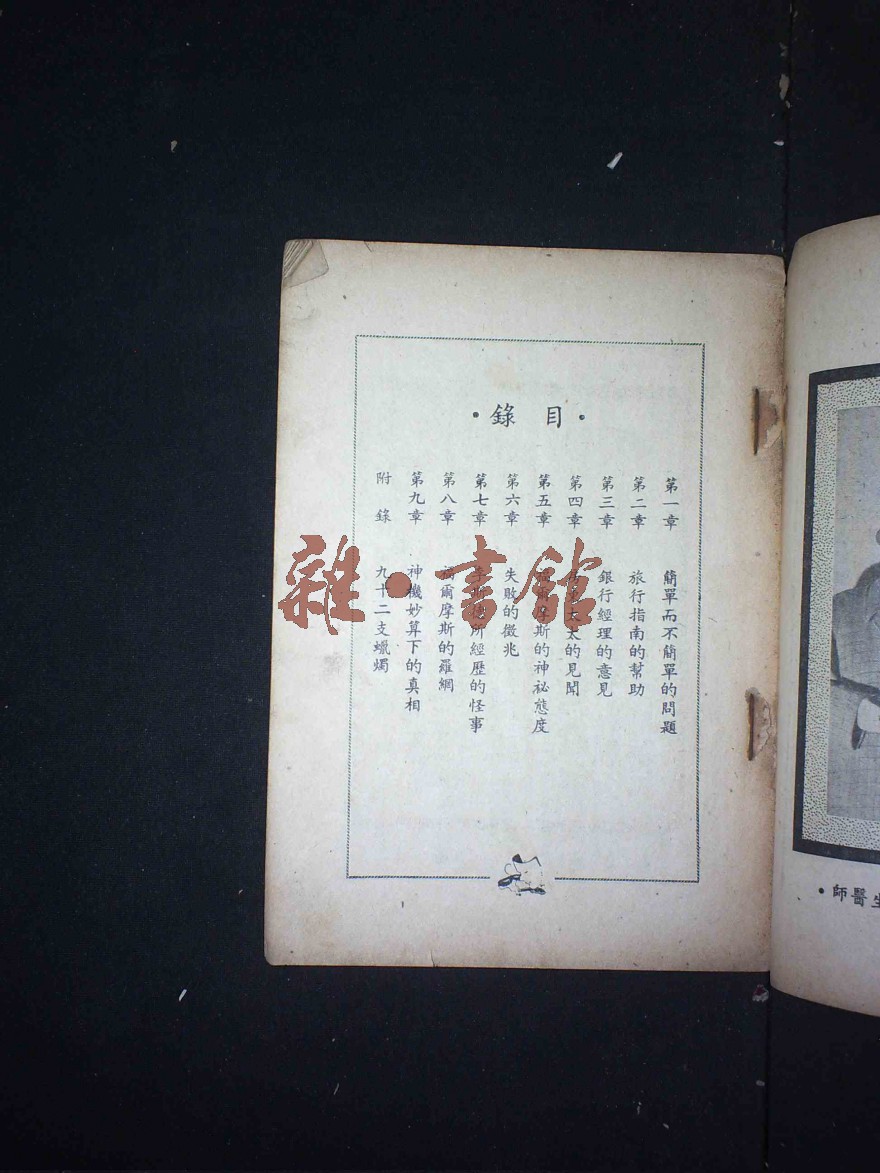 ·目錄·
第一章 簡單而不簡單的問題
第二章 旅行指南的幫助
第三章 銀行經理的意見
第四章 太太的見聞
第五章 福爾摩斯的神祕態度
第六章 失敗的徵兆
第七章 李斯德所經歷的怪事
第八章 福爾摩斯的羅網
第九章 神機妙算下的真相
附錄 九十二支蠟燭
雜·書館
生醫師·